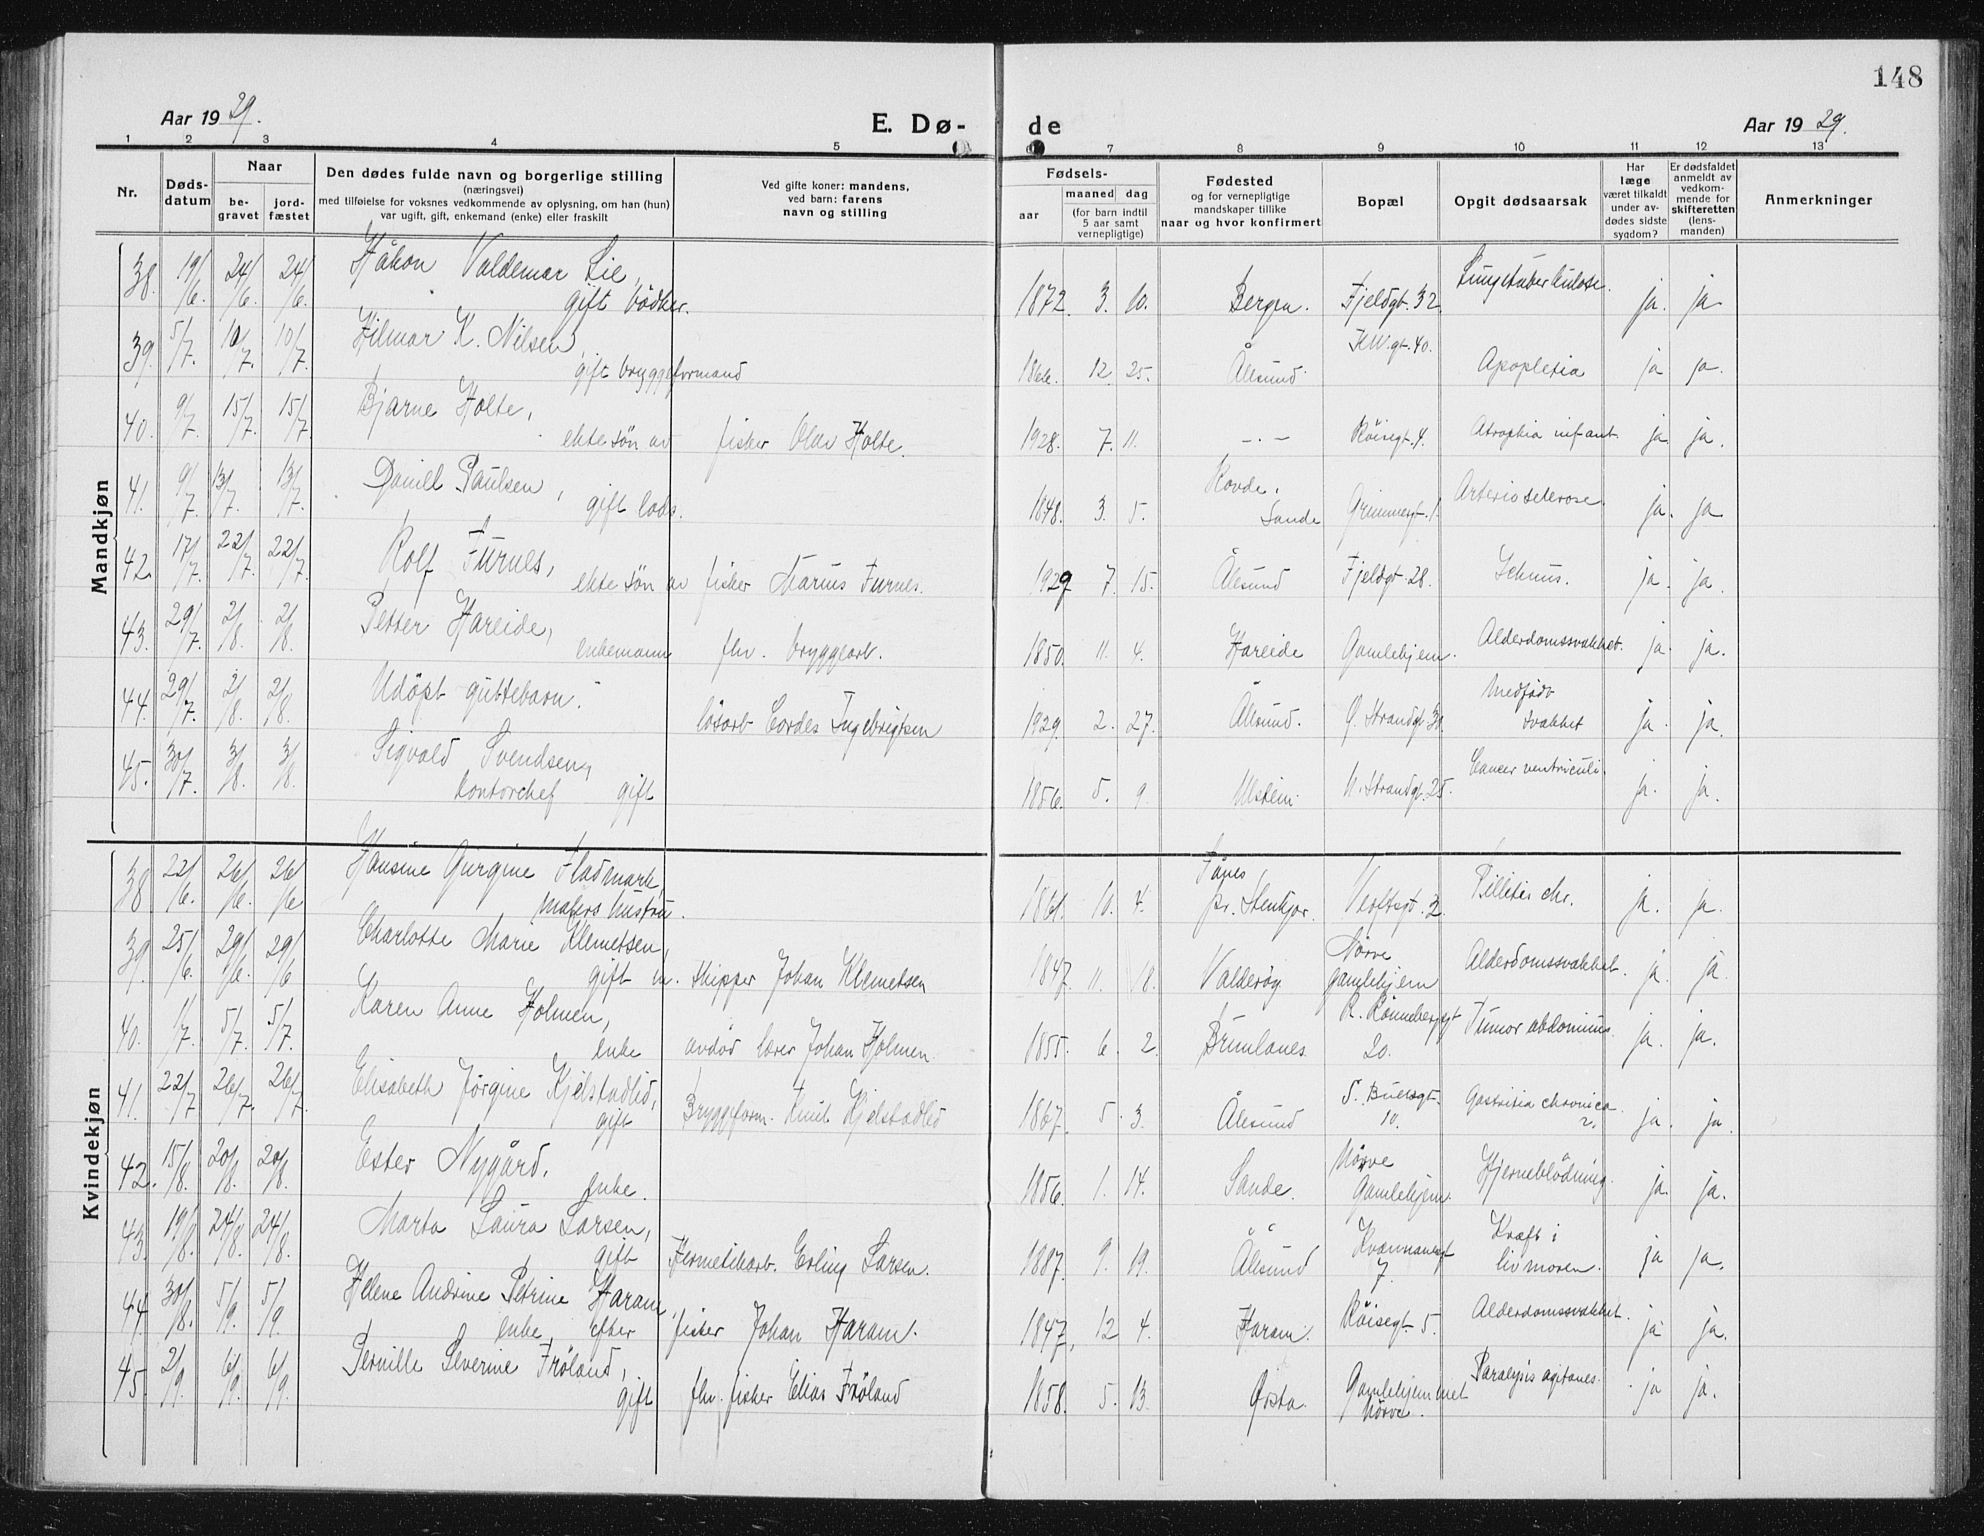 148
Aar 1929.
E. Dø-
de
Aar 1929.
1 2 3 4 5 6 7 8 9 10 11 12 13
Nr.
Døds-
datum
Naar
be-
gravet
jord-
fæstet
Den dødes fulde navn og borgerlige stilling
(næringsvei)
med tilføielse for voksnes vedkommende av oplysning, om han (hun)
var ugift, gift, enkemand (enke) eller fraskilt
Ved gifte koner: mandens,
ved barn: farens
navn og stilling
Fødsels-
aar
maaned dag
(for barn indtil
5 aar samt
vernepligtige)
Fødested
og for vernepligtige
mandskaper tillike
naar og hvor konfirmert
Bopæl
Opgit dødsaarsak
Har
læge
været tilkaldt
under av-
dødes sidste
sygdom?
Er dødsfaldet
anmeldt av
vedkom-
mende for
skifteretten
(lens-
manden)
Anmerkninger
Mandkjøn
38. 19/6. 24/6. 24/6. Håkon Valdemar Lie,
gift bödker. 1872. 3. 10. Bergen. Fjeldgt. 32. Lungetuberkulose. ja. ja
39. 5/7. 10/7. 10/7. Hilmar K. Nilsen,
gift bryggeformand 1866. 12. 25. Ålesund K.W.gt. 40. Apoplexia ja ja.
40. 9/7. 15/7. 15/7. Bjarne Holte,
ekte sön av fisker Olav Holte. 1928. 7. 11. —.— Röisegt. 4. Atrophia infant. ja ja.
41. 9/7. 13/7. 13/7. Daniel Paulsen,
gift lods. 1848. 3. 5. Rovde,
Sande Grimmergt. 1. Arteriosclerose. ja. ja
42. 17/7. 22/7. 22/7. Rolf Furnes,
ekte sön av fisker Marius Furnes. 1929 7. 15. Ålesund Fjeldgt. 28. Icterus. ja. ja.
43. 29/7. 2/8. 2/8. Petter Hareide,
enkemann fhv. bryggearb. 1850. 11. 4. Hareide Gamlehjem. Alderdomssvakhet. ja. ja.
44. 29/7. 2/8. 2/8. Udöpt guttebarn.
lösarb Cordes Ingebrigtsen 1929. 2. 27. Ålesund. Ö. Strandgt. 31. Medfödt
svakhet ja. ja.
45. 30/7. 3/8. 3/8. Sigvald Svendsen,
kontorchef gift 1856. 5. 9. Ulstein N. Strandgt. 25. Cancer ventriculi. ja. ja.
Kvindekjøn
38. 22/6. 26/6. 26/6 Hansine Gurgine Flademark,
malers hustru. 10. 4. pr. Stenkjær. Verftsgt. 2. chr. ja. ja.
39. 25/6. 29/6. 29/6 Charlotte Marie Klemetsen,
gift m. skipper Johan Klemetsen 1847. 11. 18. Valderöy Nörve
gamlehjem Alderdomssvakhet. ja. ja
40. 1/7. 5/7. 5/7. Karen Anne Holmen,
enke avdöd lærer Johan Holmen. 1855. 6. 2. Brunlanes R. Rönnebergsgt
20. Tumor abdominis. ja. ja.
41. 22/7 26/7. 26/7. Elisabeth Jörgine Kjelstadlid,
gift Bryggeform. Knut Kjelstadlid 1867. 5. 3. Ålesund S. Buersgt.
10. Gastritis chronica ja. ja.
42. 15/8. 20/8. 20/8. Ester Nygård,
enke. 1856. 1. 14. Sande. Nörve
Gamlehjem. Hjerneblödning. ja. ja.
43. 19/8. 24/8. 24/8. Marta Laura Larsen,
gift Hermetikarb. Erling Larsen. 1887. 9. 19. Ålesund
7. Kræft i
livmoren. ja ja.
44. 30/8. 5/9. 5/9. Helene Andrine Petrine Haram,
enke efter fisker Johan Haram. 1847. 12 4. Haram. Röisegt. 5. Alderdomssvakhet. ja ja.
45. 2/9. 6/9. 6/9. Pernille Severine Fröland,
gift fhv. fisker Elias Fröland 1858. 5. 13. Örsta. Gamlehjemmet
Nörve. Paralysis agitans. ja ja.